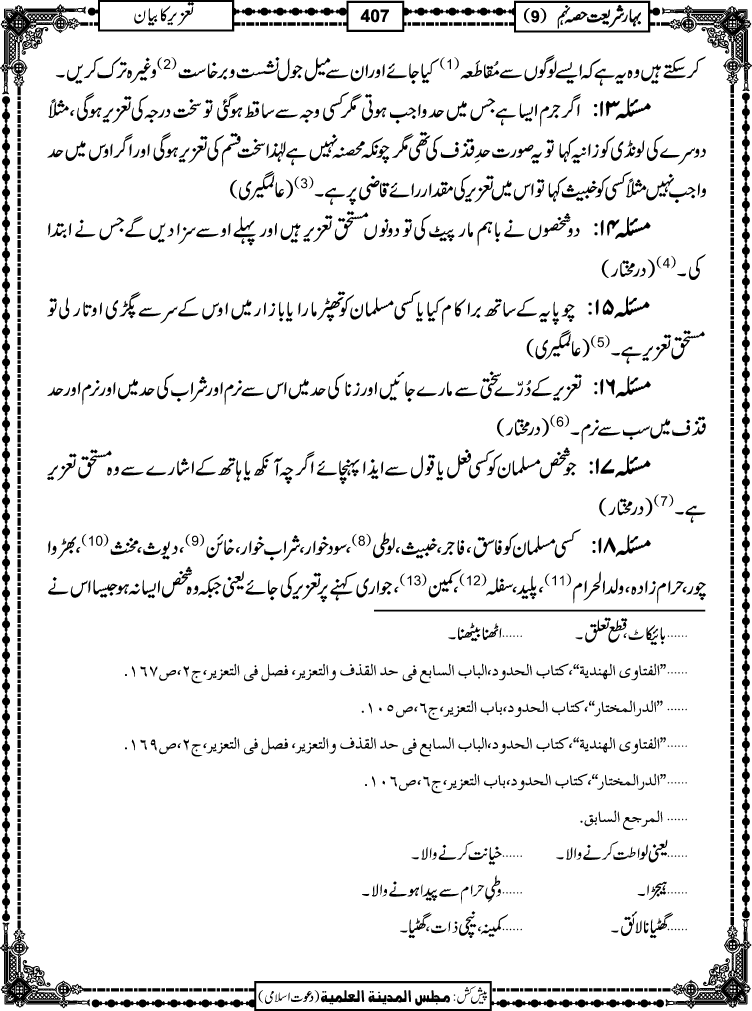 بہارِ شریعت حصہ نہم (9)
407
تعزیر کا بیان
کر سکتے ہیں وہ یہ ہے کہ ایسے لوگوں سے مُقاطَعہ (1) کیا جائے اور ان سے میل جول نشست و برخاست (2) وغیرہ ترک کریں۔
مسئلہ ۱۳: اگر جرم ایسا ہے جس میں حد واجب ہوتی مگر کسی وجہ سے ساقط ہو گئی تو سخت درجہ کی تعزیر ہوگی، مثلاً
دوسرے کی لونڈی کو زانیہ کہا تو یہ صورت حدِ قذف کی تھی مگر چونکہ محصنہ نہیں ہے لہٰذا سخت قسم کی تعزیر ہوگی اور اگر اوس میں حد
واجب نہیں مثلاً کسی کو خبیث کہا تو اس میں تعزیر کی مقدار رائے قاضی پر ہے۔ (3) (عالمگیری)
مسئلہ ۱۴: دو شخصوں نے باہم مار پیٹ کی تو دونوں مستحق تعزیر ہیں اور پہلے اوسے سزا دیں گے جس نے ابتدا
کی۔ (4) (درمختار)
مسئلہ ۱۵: چوپایہ کے ساتھ برا کام کیا یا کسی مسلمان کو تھپڑ مارا یا بازار میں اوس کے سر سے پگڑی اوتار لی تو
مستحق تعزیر ہے۔ (5) (عالمگیری)
مسئلہ ۱۶: تعزیر کے دُرّے سختی سے مارے جائیں اور زنا کی حد میں اس سے نرم اور شراب کی حد میں اور نرم اور حد
قذف میں سب سے نرم۔ (6) (درمختار)
مسئلہ ۱۷: جو شخص مسلمان کو کسی فعل یا قول سے ایذا پہنچائے اگرچہ آنکھ یا ہاتھ کے اشارے سے وہ مستحق تعزیر
ہے۔ (7) (درمختار)
مسئلہ ۱۸: کسی مسلمان کو فاسق، فاجر، خبیث، لوطی (8)، سود خوار، شراب خوار، خائن (9)، دیوث، مخنث (10)، بھڑوا
چور، حرام زادہ، ولد الحرام (11)، پلید، سفلہ (12)، کمین (13)، جواری کہنے پر تعزیر کی جائے یعنی جبکہ وہ شخص ایسا نہ ہو جیسا اس نے
......بائیکاٹ، قطع تعلق۔ ......اٹھنا بیٹھنا۔
......”الفتاوی الھندیة“، کتاب الحدود، الباب السابع فی حد القذف والتعزیر، فصل فی التعزیر، ج۲، ص۱۶۷.
...... ”الدرالمختار“، کتاب الحدود، باب التعزیر، ج۶، ص۱۰۵.
......”الفتاوی الھندیة“، کتاب الحدود، الباب السابع فی حد القذف والتعزیر، فصل فی التعزیر، ج۲، ص۱۶۹.
......”الدرالمختار“، کتاب الحدود، باب التعزیر، ج۶، ص۱۰۶.
...... المرجع السابق.
......یعنی لواطت کرنے والا۔ ......خیانت کرنے والا۔
......ہیجڑا۔ ......وطیِ حرام سے پیدا ہونے والا۔
......گھٹیا نالائق۔ ......کمینہ، نیچی ذات، گھٹیا۔
پیش کش: مجلس المدینة العلمیة (دعوت اسلامی)